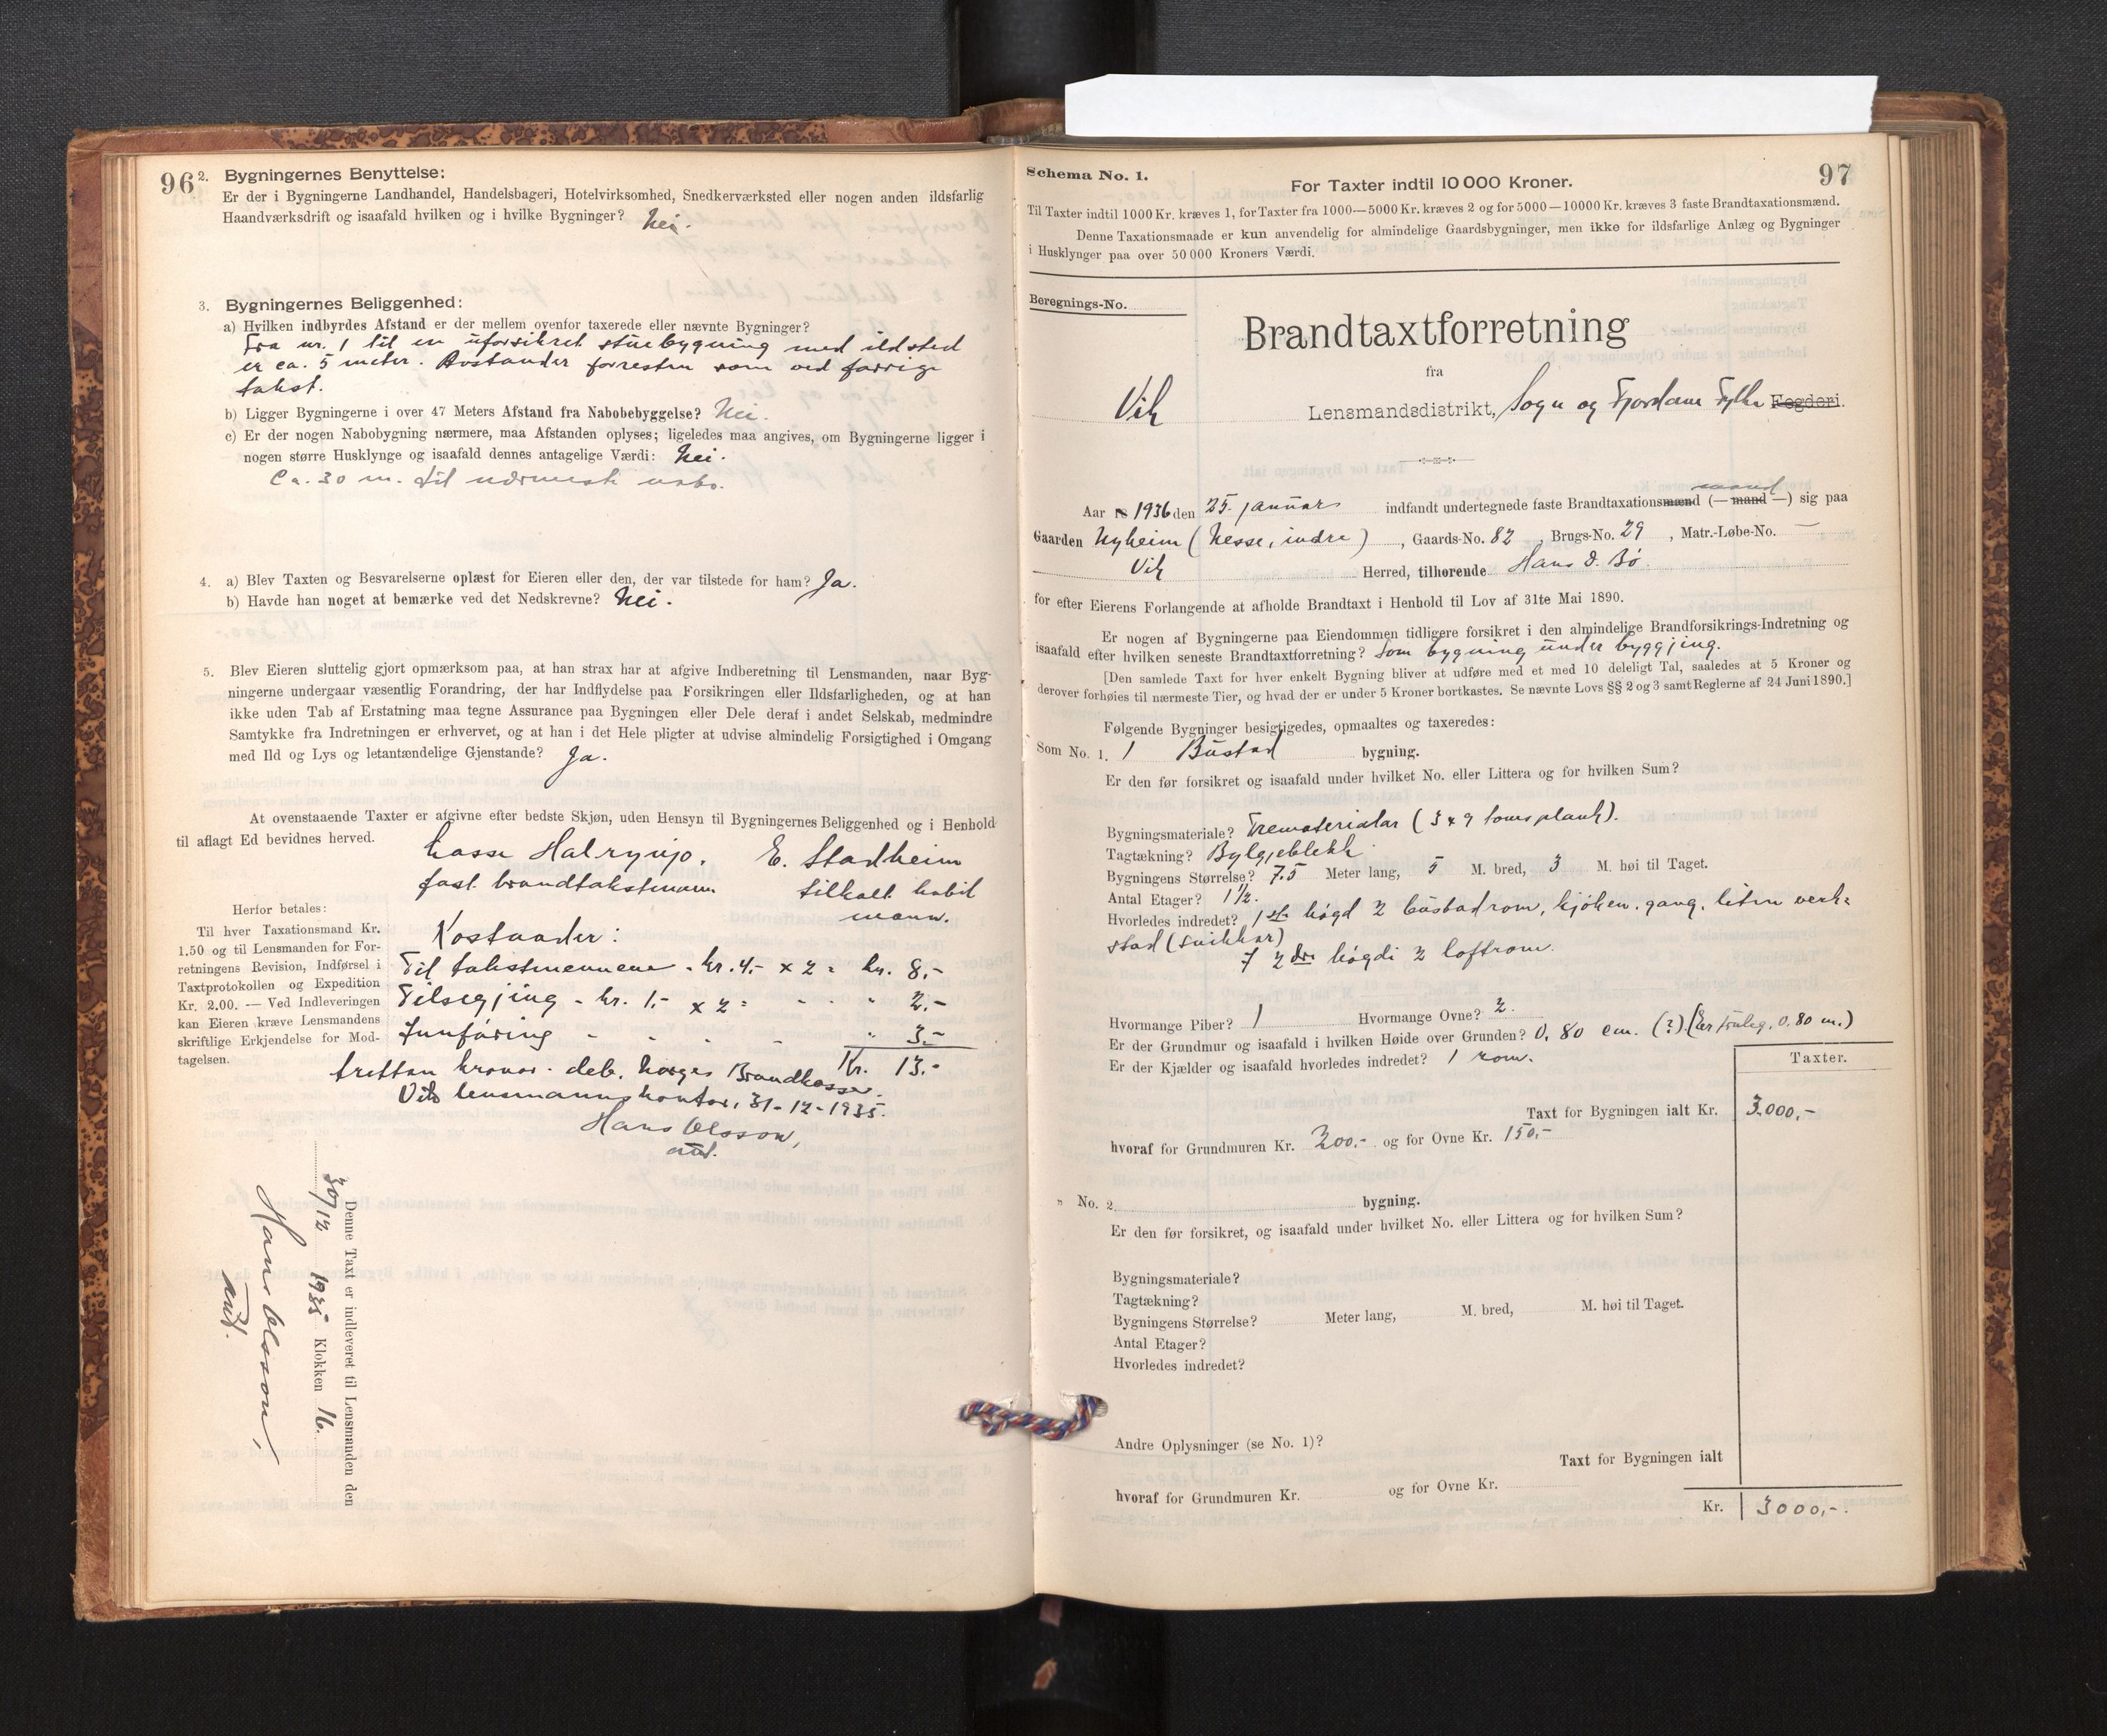 96
2. Bygningernes Benyttelse:
Er der i Bygningerne Landhandel, Handelsbageri, Hotelvirksomhed, Snedkerværksted eller nogen anden ildsfarlig
Haandværksdrift og isaafald hvilken og i hvilke Bygninger? Nei.
3. Bygningernes Beliggenhed:
a) Hvilken indbyrdes Afstand er der mellem ovenfor taxerede eller nævnte Bygninger?
Fra nr. 1 til en uforsikret stuebygning med ildsted
er ca. 5 meter. Avstander forresten som ved forrige
takst.
b) Ligger Bygningerne i over 47 Meters Afstand fra Nabobebyggelse? Nei.
c) Er der nogen Nabobygning nærmere, maa Afstanden oplyses; ligeledes maa angives, om Bygningerne ligger i
nogen større Husklynge og isaafald dennes antagelige Værdi: Nei.
Ca. 30 m. til nærmeste nabo.
4. a) Blev Taxten og Besvarelserne oplæst for Eieren eller den, der var tilstede for ham? Ja.
b) Havde han noget at bemærke ved det Nedskrevne? Nei.
5. Blev Eieren sluttelig gjort opmærksom paa, at han strax har at afgive Indberetning til Lensmanden, naar Byg-
ningerne undergaar væsentlig Forandring, der har Indflydelse paa Forsikringen eller Ildsfarligheden, og at han
ikke uden Tab af Erstatning maa tegne Assurance paa Bygningen eller Dele deraf i andet Selskab, medmindre
Samtykke fra Indretningen er erhvervet, og at han i det Hele pligter at udvise almindelig Forsigtighed i Omgang
med Ild og Lys og letantændelige Gjenstande? Ja.
At ovenstaaende Taxter er afgivne efter bedste Skjøn, uden Hensyn til Bygningernes Beliggenhed og i Henhold
til aflagt Ed bevidnes herved.
Lasse Halrynjo. E. Stadheim
fast brandtakstmann tilkalt habil
mann.
Herfor betales:
Til hver Taxationsmand Kr.
1.50 og til Lensmanden for For-
retningens Revision, Indførsel i
Taxtprotokollen og Expedition
Kr. 2.00. — Ved Indleveringen
kan Eieren kræve Lensmandens
skriftlige Erkjendelse for Mod-
tagelsen.
Kostnader:
Til takstmennene - kr. 4,- x 2 = kr. 8,-
Tilsegjing - kr. 1,- x 2 = - - " 2,-
Innføring - - - - " 3,-
Kr. 13,-
tretten kroner. deb. Norges Brandkasse.
Vik lensmannskontor, 31-12-1935.
Hans Olsson,
aut.
Denne Taxt er indleveret til Lensmanden den
30/12 1935 Klokken 16.
Hans Olsson,
aut.
97
Schema No. 1.
For Taxter indtil 10 000 Kroner.
Til Taxter indtil 1000 Kr. kræves 1, for Taxter fra 1000—5000 Kr. kræves 2 og for 5000—10000 Kr. kræves 3 faste Brandtaxationsmænd.
Denne Taxationsmaade er kun anvendelig for almindelige Gaardsbygninger, men ikke for ildsfarlige Anlæg og Bygninger
i Husklynger paa over 50 000 Kroners Værdi.
Beregnings-No.
Brandtaxtforretning
fra
Vik Lensmandsdistrikt, Sogn og Fjordane Fylke Fogderi.
Aar 18 1936 den 25. januar indfandt undertegnede faste Brandtaxationsmænd (— mand —) mand sig paa
Gaarden Nyheim (Nesse, indre), Gaards-No. 82, Brugs-No. 29, Matr.-Løbe-No. —
Vik Herred, tilhørende Hans D. Bø
for efter Eierens Forlangende at afholde Brandtaxt i Henhold til Lov af 31te Mai 1890.
Er nogen af Bygningerne paa Eiendommen tidligere forsikret i den almindelige Brandforsikrings-Indretning og
isaafald efter hvilken seneste Brandtaxtforretning? Som bygning under byggjing.
[Den samlede Taxt for hver enkelt Bygning bliver at udføre med et med 10 deleligt Tal, saaledes at 5 Kroner og
derover forhøies til nærmeste Tier, og hvad der er under 5 Kroner bortkastes. Se nævnte Lovs §§ 2 og 3 samt Reglerne af 24 Juni 1890.]
Følgende Bygninger besigtigedes, opmaaltes og taxeredes:
Som No. 1. 1 Bustad bygning.
Er den før forsikret og isaafald under hvilket No. eller Littera og for hvilken Sum?
Bygningsmateriale? Trematerialar (3 x 9 toms plank).
Tagtækning? Bylgjeblekk
Bygningens Størrelse? 7.5 Meter lang, 5 M. bred, 3 M. høi til Taget.
Antal Etager? 1½.
Hvorledes indredet? 1ste høgd 2 bustadrom, kjøken, gang, liten verk-
stad (snikkar)
I 2dre høgdi 2 loftrom.
Hvormange Piber? 1 Hvormange Ovne? 2.
Er der Grundmur og isaafald i hvilken Høide over Grunden? 0,80 cm. (?) (Er truleg. 0.80 m.)
Er der Kjælder og isaafald hvorledes indredet? 1 rom.
Taxter.
Taxt for Bygningen ialt Kr. 3.000,-
hvoraf for Grundmuren Kr. 200,- og for Ovne Kr. 150,-
" No. 2. bygning.
Er den før forsikret, og isaafald under hvilket No. eller Littera og for hvilken Sum?
Bygningsmateriale?
Tagtækning?
Bygningens Størrelse? Meter lang, M. bred, M. høi til Taget.
Antal Etager?
Hvorledes indredet?
Andre Oplysninger (se No. 1)?
Taxt for Bygningen ialt
hvoraf for Grundmuren Kr. og for Ovne Kr.
Kr. 3000,-.